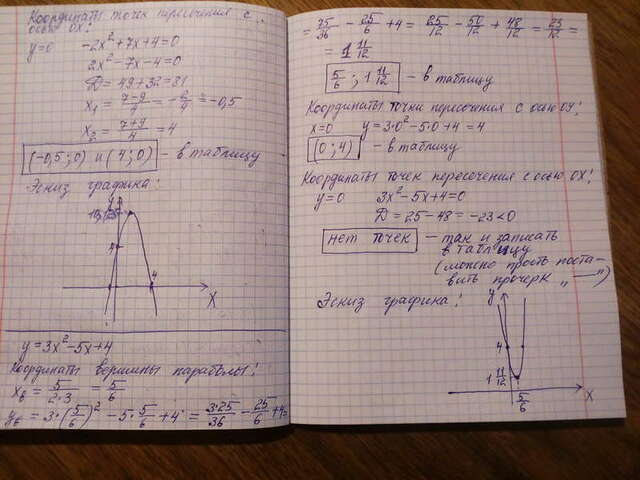 Координаты точек пересечения с
осью OX:
y=0 -2x²+7x+4=0
2x²-7x-4=0
D=49+32=81
x₁=(7-9)/4=-2/4=-0,5
x₂=(7+9)/4=4
(-0,5;0) и (4;0) - в таблицу
Эскиз графика:
y
4
4
X
y=3x²-5x+4
Координаты вершины параболы:
xв=5/(2·3)=5/6
yв=3·(5/6)²-5·5/6+4=(3·25)/36-25/6+4=
=25/12-50/12+48/12=23/12=
=1 11/12
5/6; 1 11/12 - в таблицу
Координаты точки пересечения с осью OY:
x=0 y=3·0²-5·0+4=4
(0;4) - в таблицу
Координаты точек пересечения с осью OX:
y=0 3x²-5x+4=0
D=25-48=-23<0
нет точек - так и записать
в таблицу
(можно прость поста-
вить прочерк „—”)
Эскиз графика:
y
4
1 11/12
5/6
X